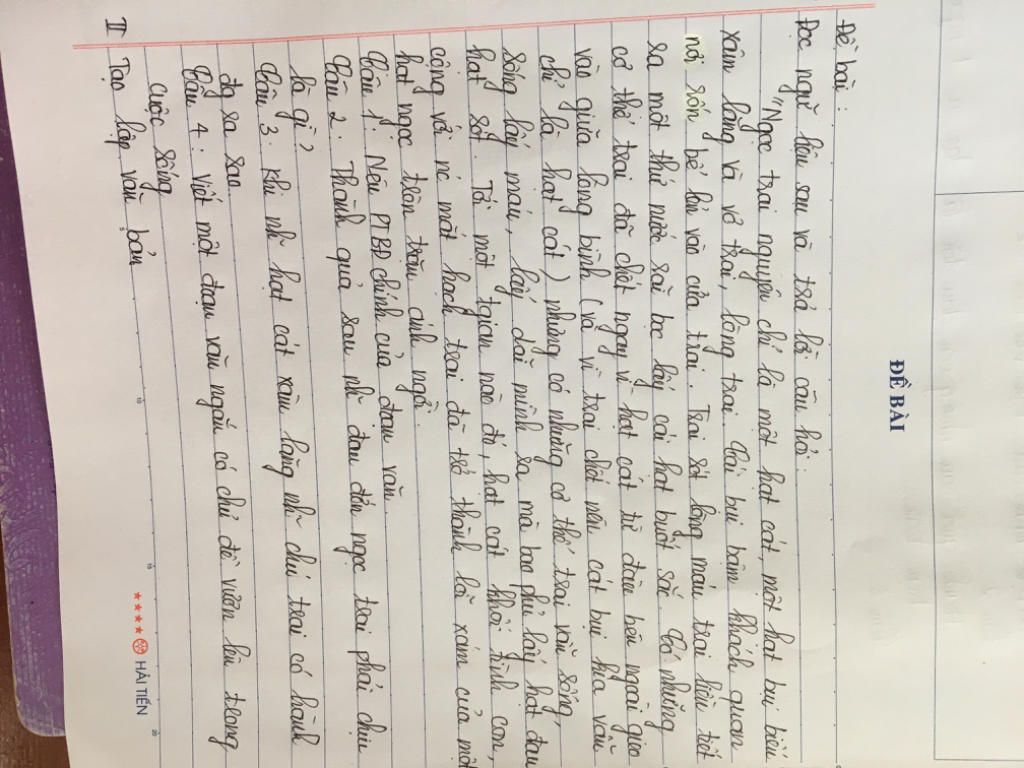 ĐỀ BÀI
Đề bài :
Đọc ngữ liệu sau và trả lời câu hỏi :
"Ngọc trai nguyên chỉ là một hạt cát, một hạt bụi biển
xâm lăng và vỏ trai, lòng trai. Cái bụi bặm khách quan
nơi rốn bể lẻn vào cửa trai. Trai sót lòng máu trai liền tiết
ra một thứ nước rãi bọc lấy cái hạt buốt sắc. Có những
cơ thể trai đã chết ngay vì hạt cát từ đâu bên ngoài gieo
vào giữa lòng bình (và vì trai chết nên cát bụi kia vẫn
chỉ là hạt cát) nhưng có những cơ thể trai vẫn sống,
sống lấy máu, lấy dãi mình ra mà bao phủ lấy hạt đau
hạt sót. Tới một tgian nào đó, hạt cát khối tình con,
cộng với nc mắt hạch trai đã trở thành lõi xám của một
hạt ngọc tròn trặn ánh ngời.
Câu 1: Nêu PTBĐ chính của đoạn văn.
Câu 2: Thành quả sau nỗi đau đớn ngọc trai phải chịu
là gì?
Câu 3. Khi nhữ hạt cát xâm lăng nhữ chú trai có hành
đg ra sao
Câu 4: Viết một đoạn văn ngắn có chủ đề vươn lên trong
cuộc sống
II Tạo lập văn bản
10 15 20
★★★★ HẢI TIẾN